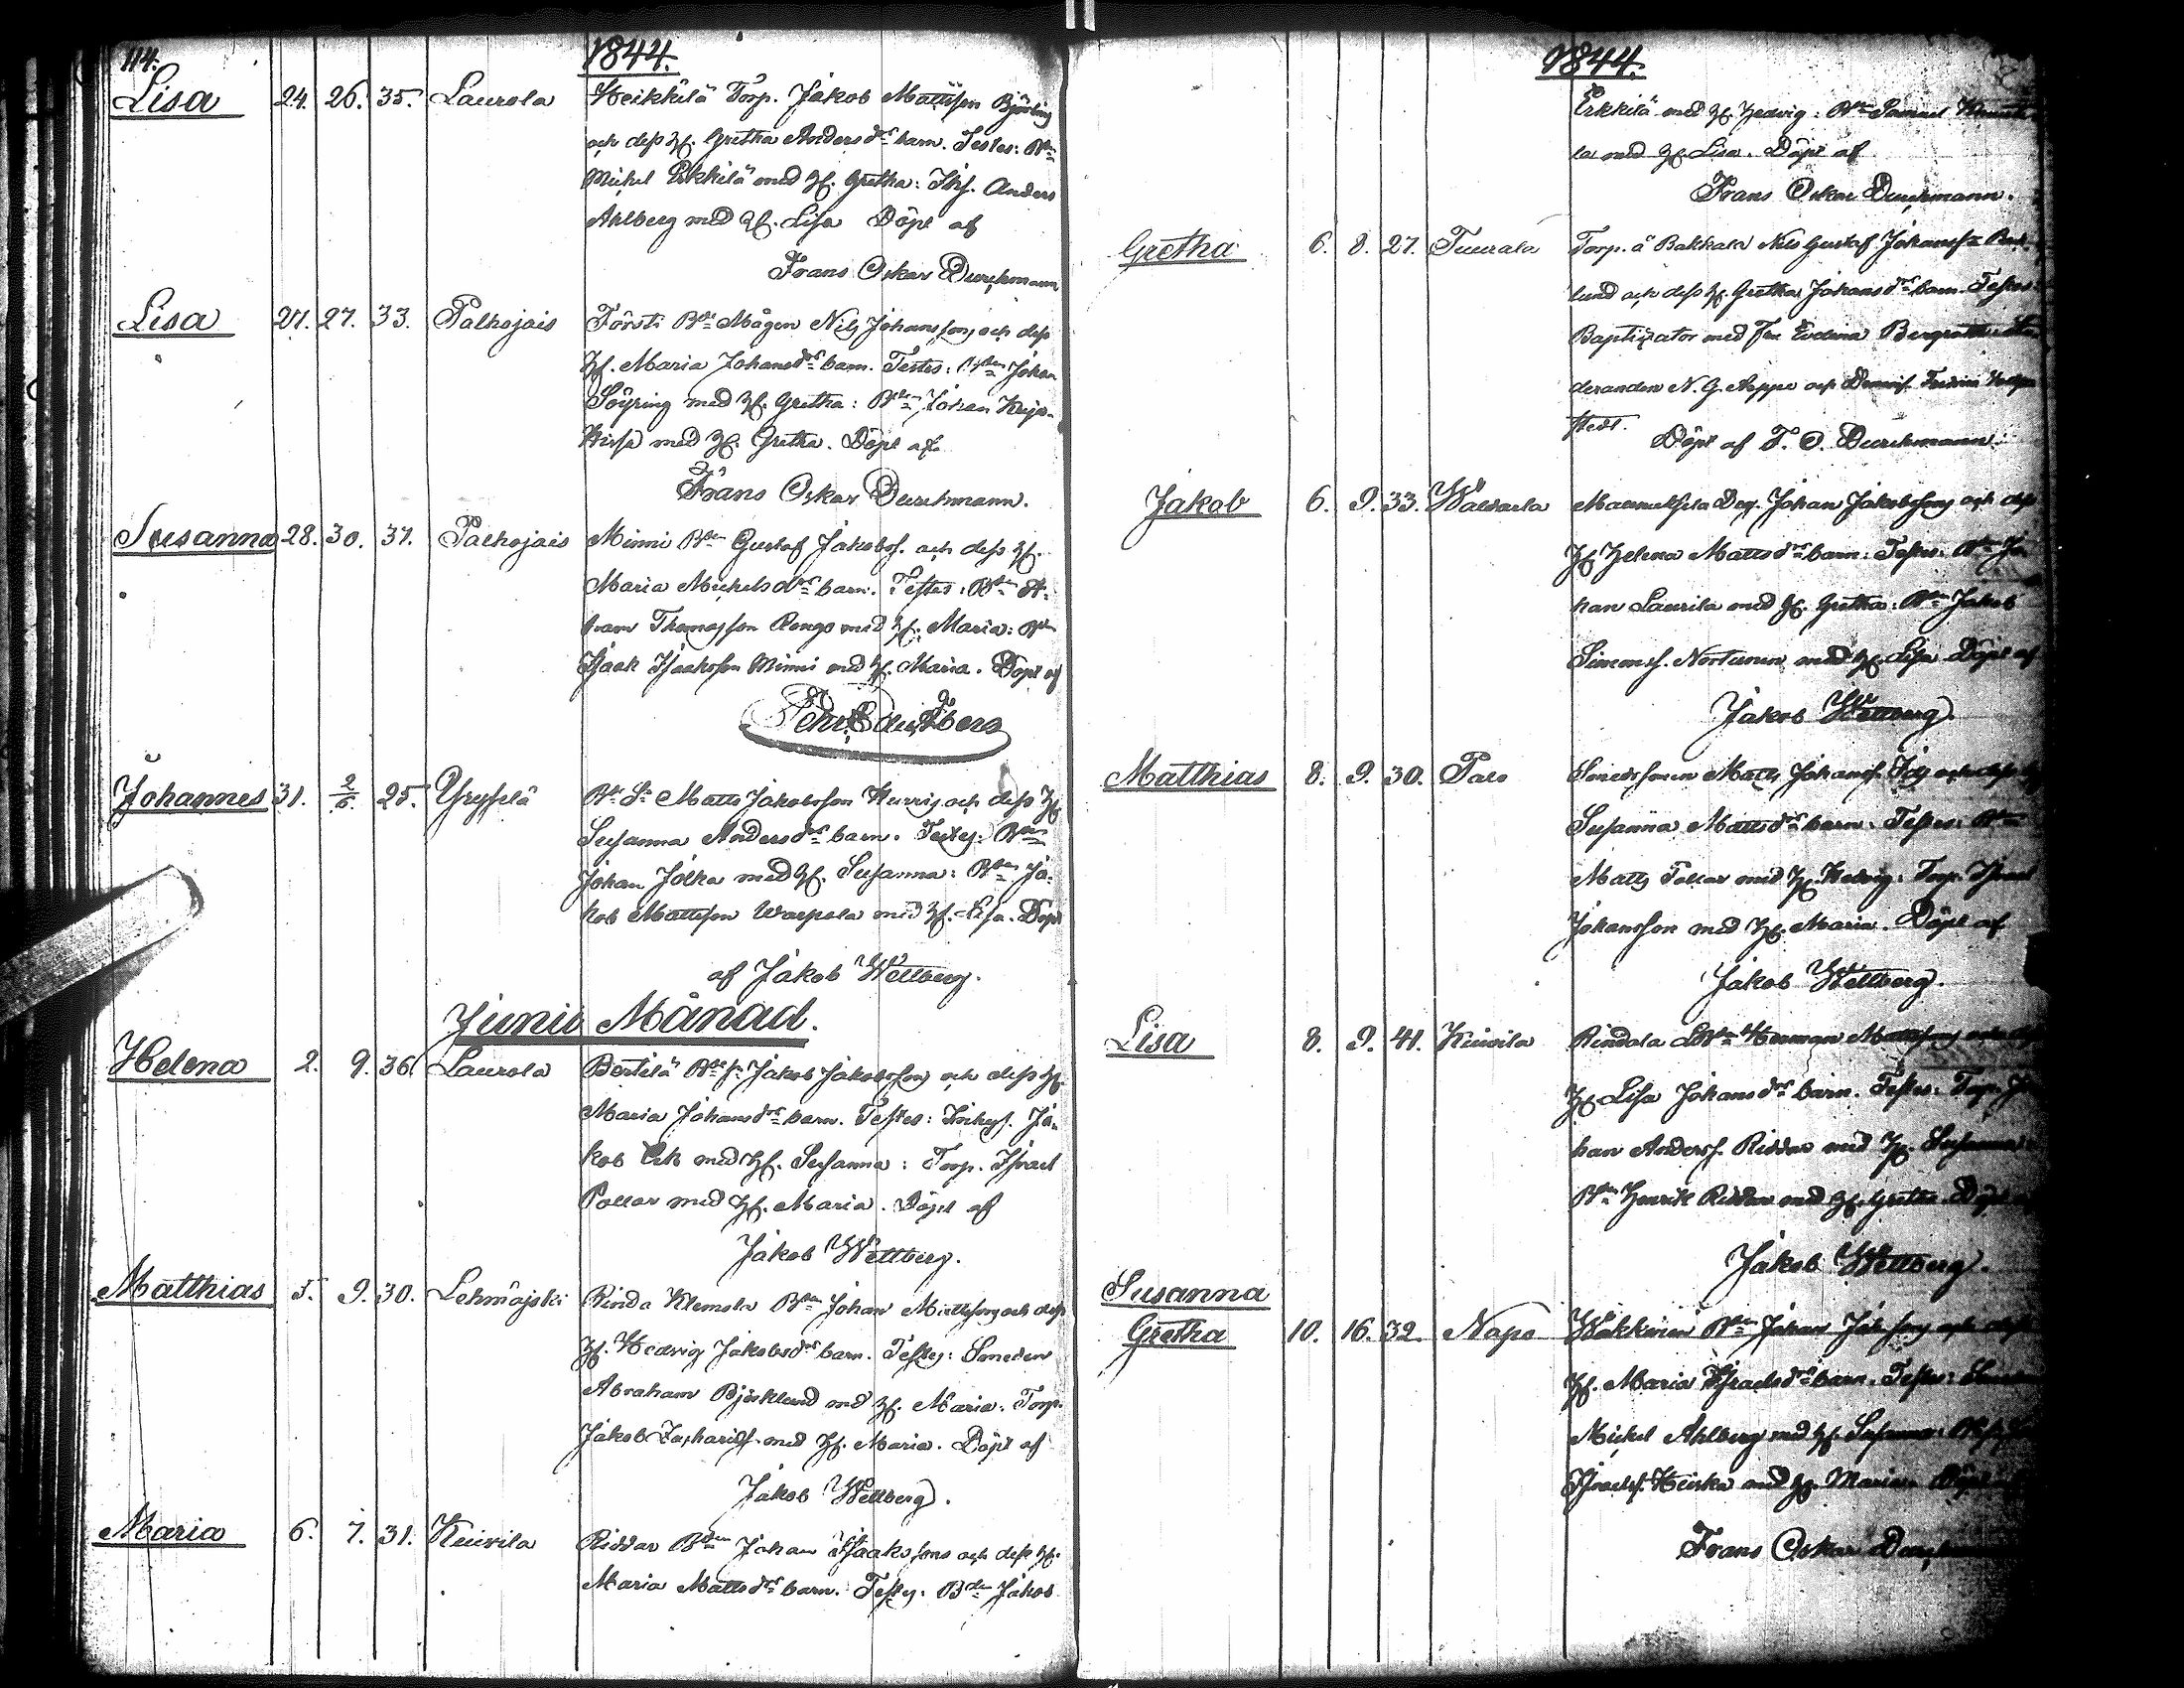 114.
1844.
Lisa 24. 26. 35. Laurola Heikkilä Torp. Jakob Mattsson Björling
och dess H. Gretha Andersdr barn. Testes: Bdn
Michel Erkkilä med H. Gretha: Ihs. Anders
Ahlberg med H. Lisa Döpt af
Frans Oskar Durchmann
Lisa 27. 27. 33. Palhojais Försti Bde Mågen Nils Johansson och dess
H. Maria Johansdr barn. Testes: Bdn Johan
Söyring med H. Gretha: Bdn Johan
med H. Gretha. Döpt af
Frans Oskar Durchmann.
Susanna 28. 30. 37. Palhojais Minni Bdn Gustaf Jakobss. och dess H.
Maria Michelsdr barn. Testes: Bdn A-
bram Thomasson Rengo med H. Maria: Bdn
Isaak Isaaksson Minni med H. Maria. Döpt af
Johannes 31. 2/6. 25. Yryselä Bde Sn Matts Jakobsson och dess H.
Susanna Andersdr barn. Testes: Bdn
Johan Jolka med H. Susanna: Bdn Ja-
kob Mattsson Warpola med H. Lisa. Döpt
af Jakob Wettberg.
Junii Månad.
Helena 2. 9. 36. Laurola Bertilä Bde Sn Jakob Jakobsson och dess H.
Maria Johansdr barn. Testes: Inhys. Ja-
kob Ek med H. Susanna: Torp. Israel
Pollar med H. Maria. Döpt af
Jakob Wettberg.
Matthias 5. 9. 30. Lehmäjoki Rinda Klemola Bdn Johan Mattsson och dess
H. Hedvig Jakobsdr barn. Testes: Smeden
Abraham Björklund med H. Maria: Torp.
Jakob Zachariss. med H. Maria. Döpt af
Jakob Wettberg.
Maria 6. 7. 31. Kuivila Riddar Bdn Johan Isaaksson och dess H.
Maria Mattsdr barn. Testes: Bdn Jakob
1844.
Erkkilä med H. Hedvig: Bdn Samuel
la med H. Lisa. Döpt af
Frans Oskar Durchmann.
Gretha 6. 8. 27. Tuurala Torp. å Bakkala Nils Gustaf Johansson
lund och dess H. Gretha Johansdr barn. Testes:
Baptizator med Fru Evelina
deranden N. G. Aeppe och
stedt.
Döpt af F. O. Durchmann.
Jakob 6. 9. 33. Waldarla Johan Jakobsson och dess
H. Helena Mattsdr barn. Testes: Bdn Jo-
han Laurila med H. Gretha: Bdn Jakob
Simonss. Nortunen med H. Lisa Döpt af
Jakob Wettberg.
Matthias 8. 9. 30. Palo Smedssonen Matts Johanss. och dess H.
Susanna Mattsdr barn. Testes: Bdn
Matts Pollar med H. Hedvig: Torp. Israel
Johansson med H. Maria. Döpt af
Jakob Wettberg.
Lisa 8. 9. 41. Kuivila Rindala Herman Mattsson och dess
H. Lisa Johansdr barn. Testes: Torp. Jo-
han Anderss. Riddar med H. Susanna
Bdn Henrik Riddar med H. Gretha. Döpt af
Jakob Wettberg.
Susanna
Gretha 10. 16. 32. Napo Wäkkinen Bdn Johan och dess
H. Maria Israelsdr barn. Testes:
Michel Ahlberg med H. Susanna:
Israelss. Heiska med H. Maria. Döpt af
Frans Oskar Durchmann